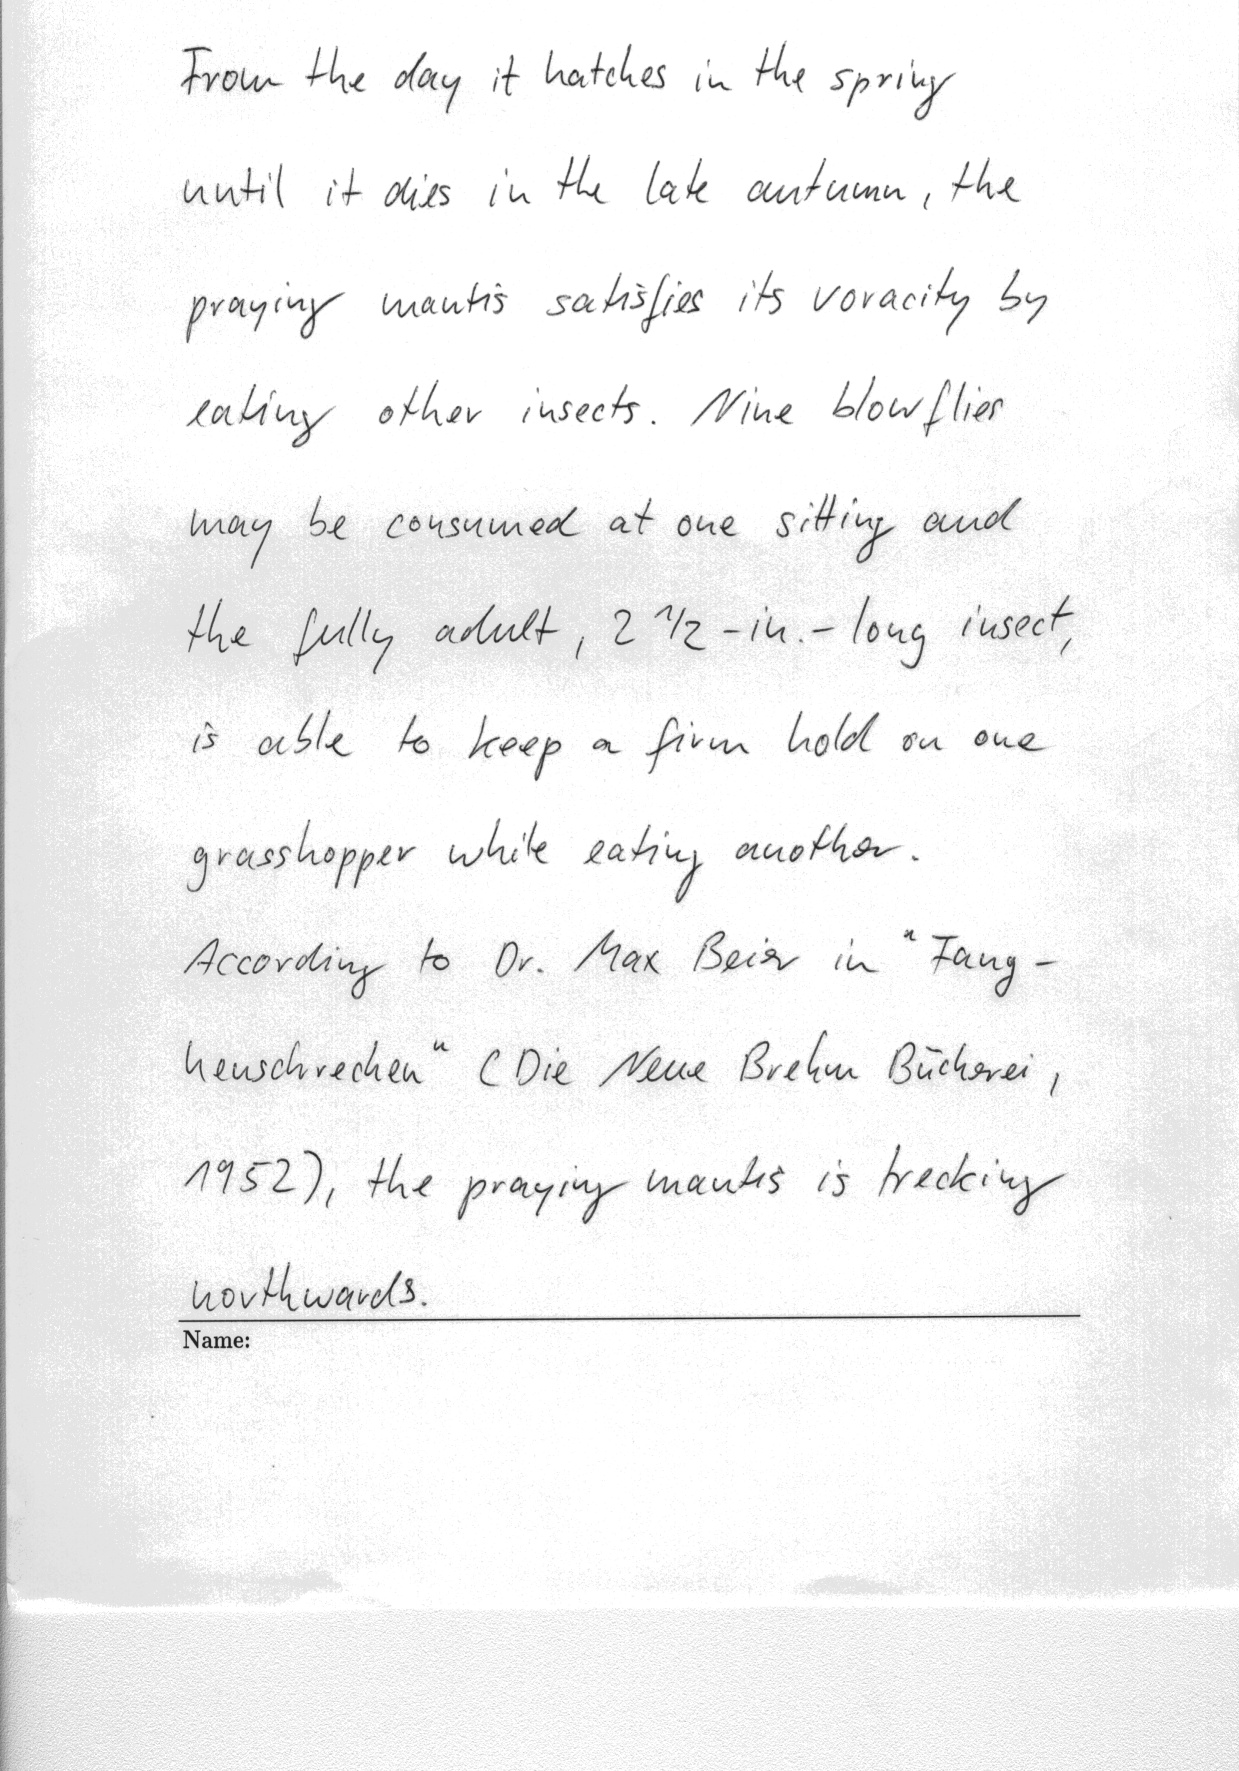 From the day it hatches in the spring
until it dies in the late autumn, the
praying mantis satisfies its voracity by
eating other insects. Nine blowflies
may be consumed at one sitting and
the fully adult, 2 1/2 -in.- long insect,
is able to keep a firm hold on one
grasshopper while eating another.
According to Dr. Max Beier in "Fang-
heuschrecken" (Die Neue Brehm Bücherei,
1952), the praying mantis is trecking
northwards.
Name: